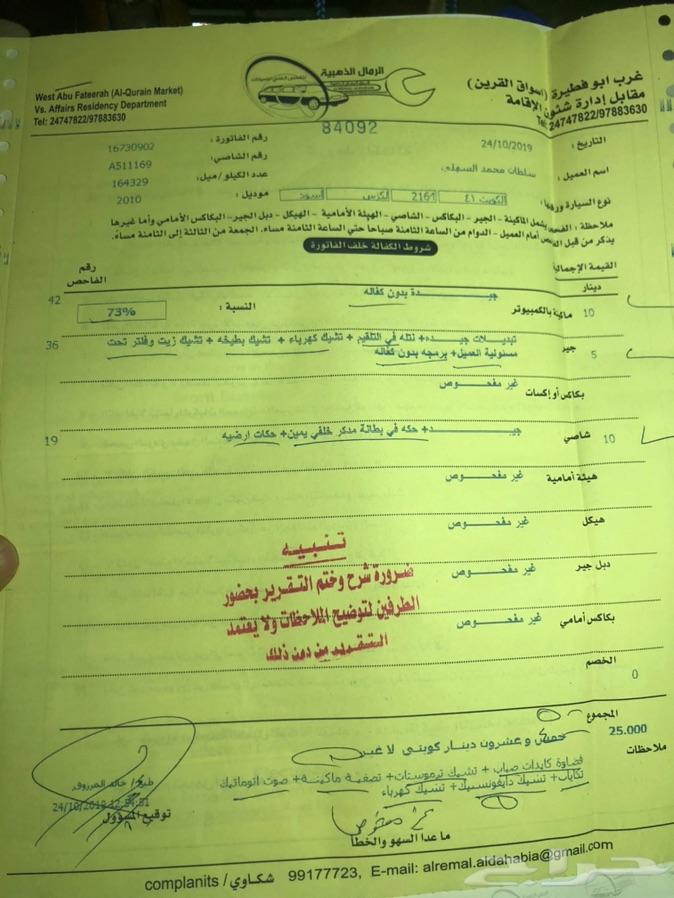 غرب ابو فطيرة (اسواق القرين)
مقابل إدارة شئون الإقامة
Tel: 24747822/97883630
الرمال الذهبية
West Abu Fateerah (Al-Qurain Market)
Vs. Affairs Residency Department
Tel: 24747822/97883630
84092
التاريخ : 24/10/2019
رقم الفاتورة : 16730902
اسم العميل : سلطان محمد السهلي
رقم الشاصي : A511169
عدد الكيلو/ميل : 164329
الكويت ٤١ 2161 لكزس أسود
موديل : 2010
يشمل الماكينة - الجير - البكاكس - الشاصي - الهيئة الأمامية - الهيكل - دبل الجير - البكاكس الأمامي وأما غيرها
أمام العميل - الدوام من الساعة الثامنة صباحا حتى الساعة الثامنة مساء. الجمعة من الثالثة إلى الثامنة مساءً.
شروط الكفالة خلف الفاتورة
القيمة الإجمالية
دينار
رقم الفاحص
10 ماكينة بالكمبيوتر جيـــدة بدون كفاله النسبة : 73% 42
5 جير تبديلات جيـده+ نتله في التلقيم + تشيك كهرباء + تشيك بطيخه + تشيك زيت وفلتر تحت 36
مسئولية العميل+ برمجه بدون كفاله
بكاكس أو إكسات غير مفحـــوص
10 شاصي جيـــد+ حكه في بطانة مدكر خلفي يمين+ حكات ارضيه 19
هيئة أمامية غير مفحـــوص
هيكل غير مفحـــوص
دبل جير غير مفحـــوص
بكاكس أمامي غير مفحـــوص
الخصم 0
تـنـبـيـه
ضرورة شرح وختم التقرير بحضور
الطرفين لتوضيح الملاحظات ولا يعتمد
التقرير من دون ذلك
المجموع 25.000
خمس و عشرون دينار كويتي لا غير
ملاحظات
قضاوة كايدات صباب + تشيك ثرموستات + تصفية ماكينة + صوت اتوماتيك
تكايات + تشيك دايفونسيك + تشيك كهرباء
24/10/2019
توقيع المسؤول
ما عدا السهو والخطأ
complanits / شكاوي 99177723, E-mail: alremal.aldahabia@gmail.com
حراج